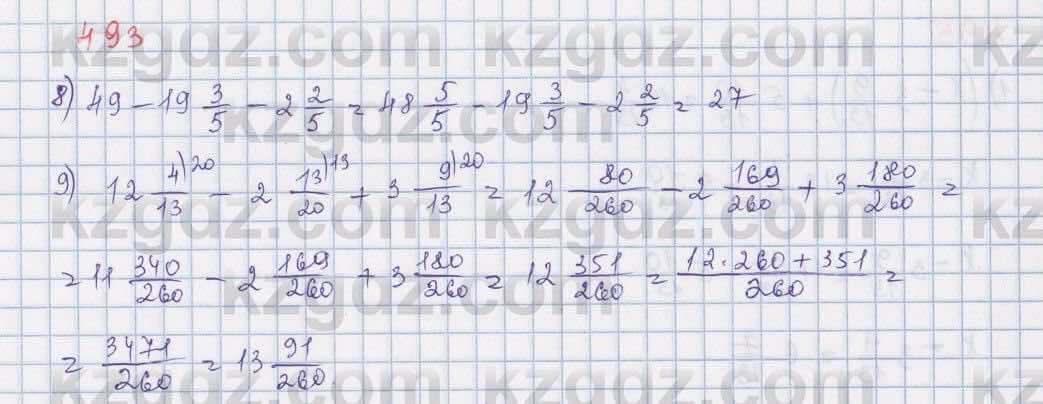 493
8) 49 - 19 3/5 - 2 2/5 = 48 5/5 - 19 3/5 - 2 2/5 = 27
9) 12 4/13 )20 - 2 13/20 )13 + 3 9/13 )20 = 12 80/260 - 2 169/260 + 3 180/260 =
= 11 340/260 - 2 169/260 + 3 180/260 = 12 351/260 = (12·260+351)/260 =
= 3471/260 = 13 91/260
kzgdz.com
kzgdz.com
kzgdz.com
kzgdz.com
kzgdz.com
kzgdz.com